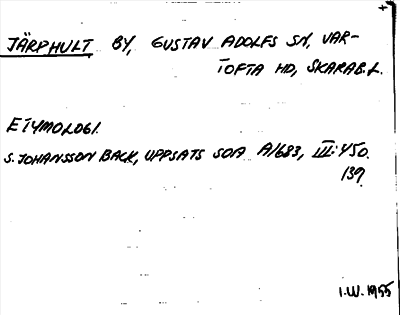 JÄRPHULT BY, GUSTAV ADOLFS SN, VAR-
TOFTA HD, SKARAB.L.
ETYMOLOGI.
S. JOHANSSON BACK, UPPSATS SOA A1683, III:450.
139.
I.W. 1955